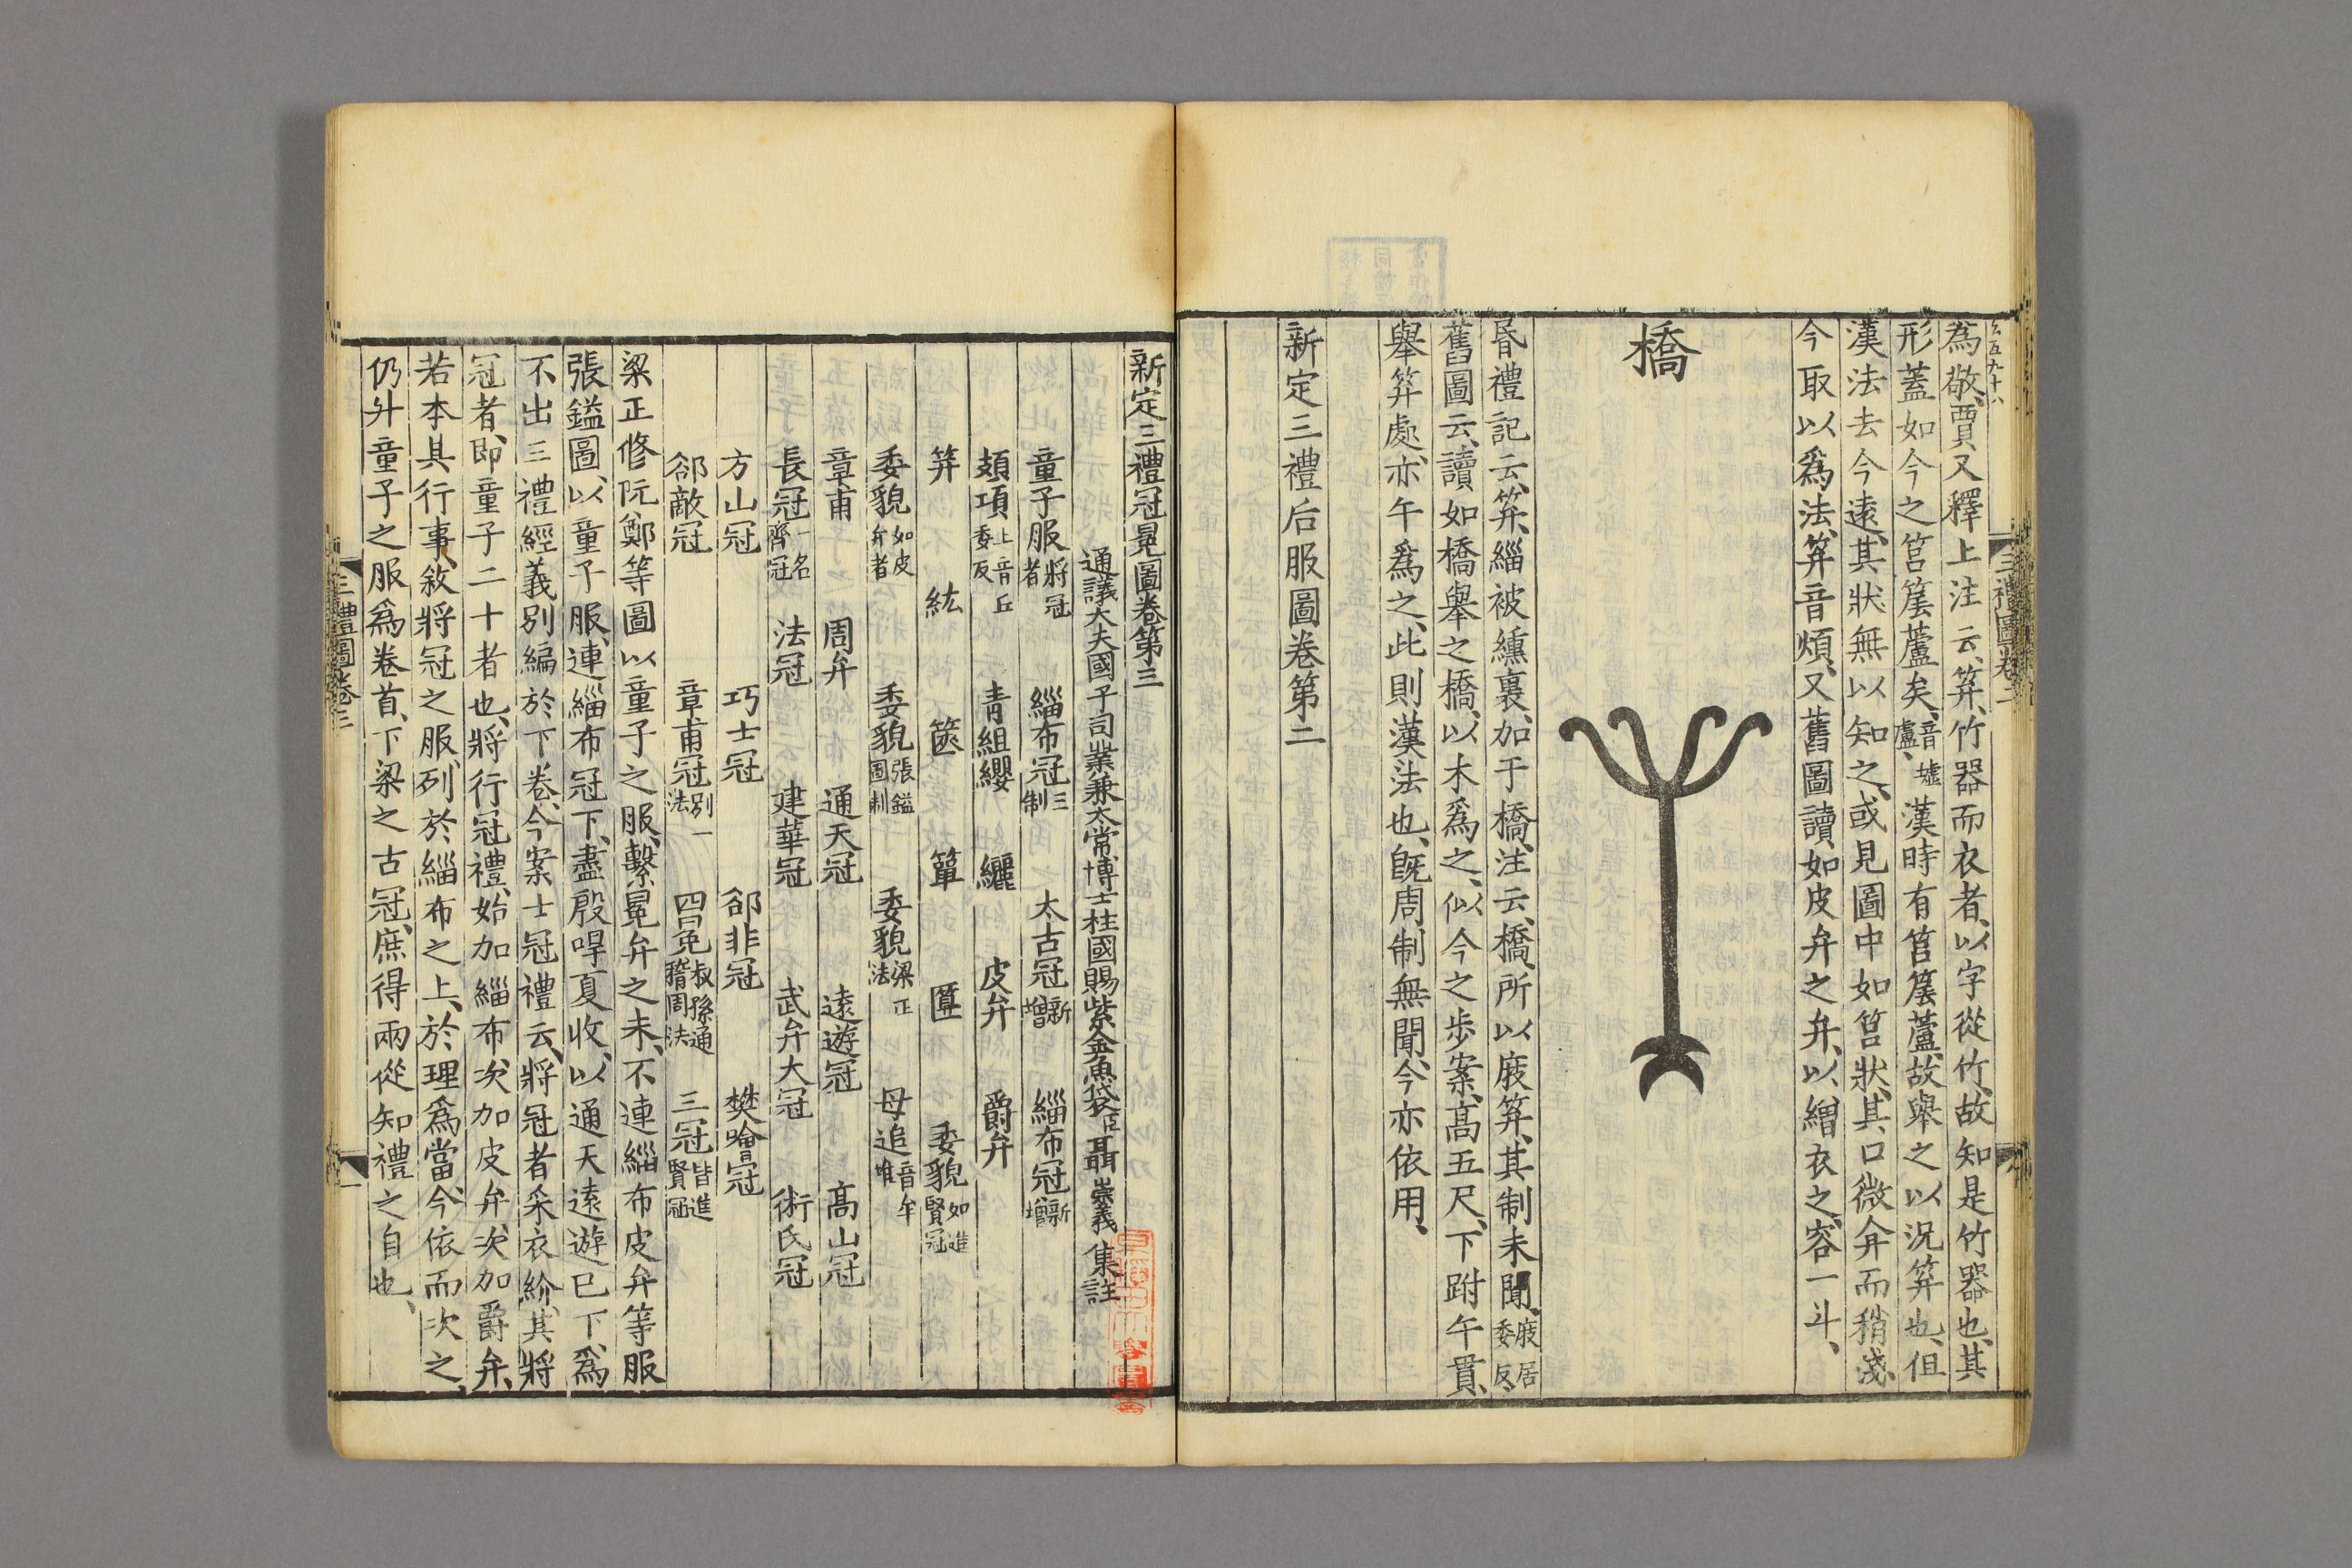 為敬賈又釋上注云笲竹器而衣者以字從竹故知是竹器也其
形蓋如今之筥䈰蘆矣音墟盧漢時有筥䈰蘆故舉之以況笲也但
漢法去今遠其狀無以知之或見圖中如筥狀其口微弇而稍淺
今取以爲法笲音煩又舊圖讀如皮弁之弁以繒衣之容一斗
橋
昏禮記云笲緇被纁裏加于橋注云橋所以庪笲其制未聞庪居委反
舊圖云讀如橋舉之橋以木爲之似今之步案高五尺下跗午貫
舉笲處亦午爲之此則漢法也旣周制無聞今亦依用
新定三禮后服圖卷第二
三禮圖卷二
新定三禮冠冕圖卷第三
通議大夫國子司業兼太常博士柱國賜紫金魚袋臣聶崇義集註
童子服將冠者 緇布冠三制 太古冠新增 緇布冠新增
頍項上音丘委反 青組纓 纚 皮弁 爵弁
笄 紘 篋 簞 匴 委貌如進賢冠
委貌如皮弁者 委貌張鎰圖制 委貌梁正法 毋追音牟唯
章甫 周弁 通天冠 遠遊冠 高山冠
長冠一名齊冠 法冠 建華冠 武弁大冠 術氏冠
方山冠 巧士冠 郤非冠 樊噲冠
郤敵冠 章甫冠別一法 四冕叔孫通稽周法 三冠皆進賢冠
梁正修阮鄭等圖以童子之服繫冕弁之末不連緇布皮弁等服
張鎰圖以童子服連緇布冠下盡殷哻夏收以通天遠遊已下爲
不出三禮經義別編於下卷今案士冠禮云將冠者采衣紒其將
冠者即童子二十者也將行冠禮始加緇布次加皮弁次加爵弁
若本其行事敘將冠之服列於緇布之上於理爲當今依而次之
仍升童子之服爲卷首下梁之古冠庶得兩從知禮之自也
三禮圖卷三
一